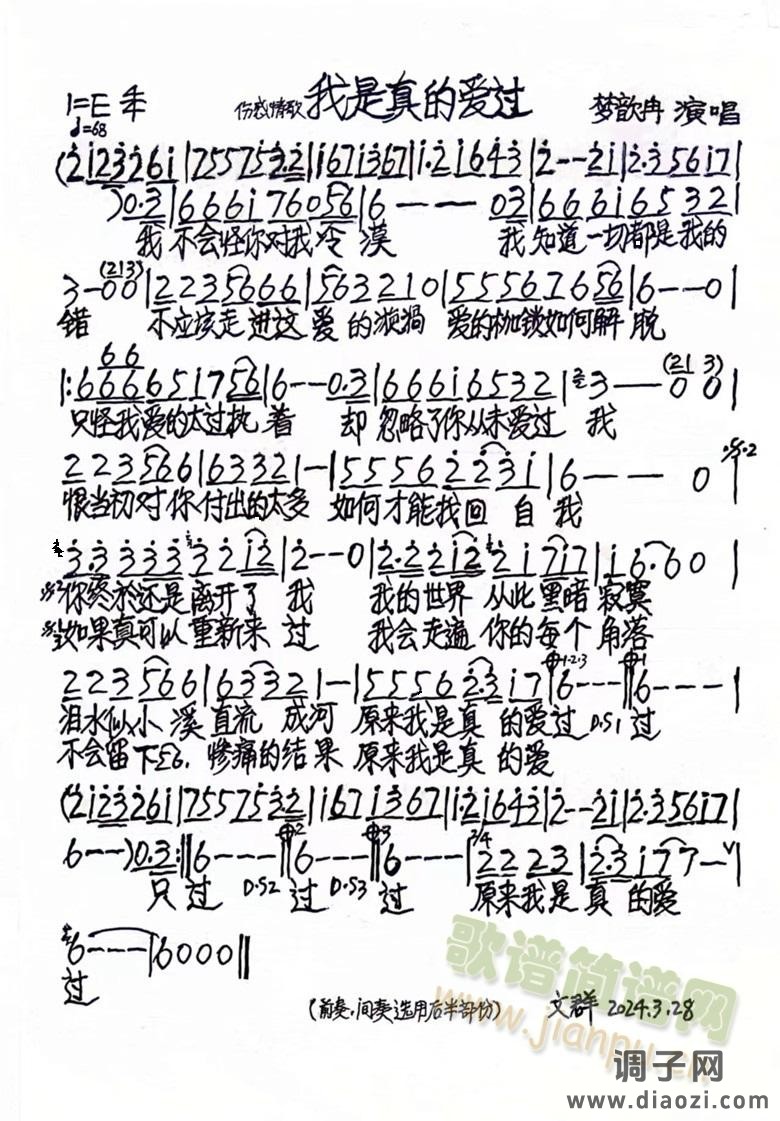 1=E 4/4 ♩=68 伤感情歌 我是真的爱过 梦歆冉 演唱
(2 1 2 3 2 6 1 | 7 5 5 7 5 3 2 | 1 6 7 1 3 6 7 | 1·2 1 6 4 3 | 2 - - 2 1 | 2·3 5 6 1 7 |
) 0·3 | 6 6 6 1 7 6 0 5 6 | 6 - - - 0 3 | 6 6 6 1 6 5 3 2 |
我 不会怪你对我冷 漠 我 知道一切都是我的
3 - 0 0 (213) | 2 2 3 5 6 6 6 | 5 6 3 2 2 1 0 | 5 5 5 6 7 6 5 6 | 6 - - 0 |
错 不应该走进这 爱 的漩涡 爱的枷锁如何解 脱
6 6
|: 6 6 6 6 6 5 1 7 5 6 | 6 - - 0·3 | 6 6 6 1 6 5 3 2 | 3 - 0 0 (21 3) |
只怪我爱的太过执着 却 忽略了你从未爱过 我
2 2 3 5 6 6 | 6 3 3 2 1 - | 5 5 5 6 2 2 3 1 | 6 - - - 0 |
恨当初对你付出的太多 如何才能找回 自 我
3·3 3 3 3 3 2 1 2 | 2 - - 0 | 2·2 2 1 2 2 1 7 1 7 | 1 6·6 0 |
你终於还是离开了 我 我的世界 从此黑暗寂寞
如果真可以重新来 过 我会走遍 你的每个 角落
2 2 3 5 6 6 | 6 3 3 2 1 - | 5 5 5 6 2·3 1 7 | 6 - - - || 6 - - - |
泪水似小 溪直流 成河 原来我是真 的爱过 D.S1 过
不会留下 惨痛的结果 原来我是真 的爱
(2 1 2 3 2 6 1 | 7 5 5 7 5 3·2 | 1 6 7 1 3 6 7 | 1·2 1 6 4 3 | 2 - - 2 1 | 2·3 5 6 1 7 |
6 - - - ) 0·3 :|| 6 - - - || 6 - - - || 6 - - - | 2/4 2 2 2 3 | 2·3 1 7 7 - |
只 过 D.S2 过 D.S3 过 原来我是 真 的爱
6 - - - | 6 0 0 0 ||
过
(前奏·间奏选用后半部份) 文群 2024.3.28
歌谱简谱网
www.jianpu.cn
调子网
www.diaozi.com